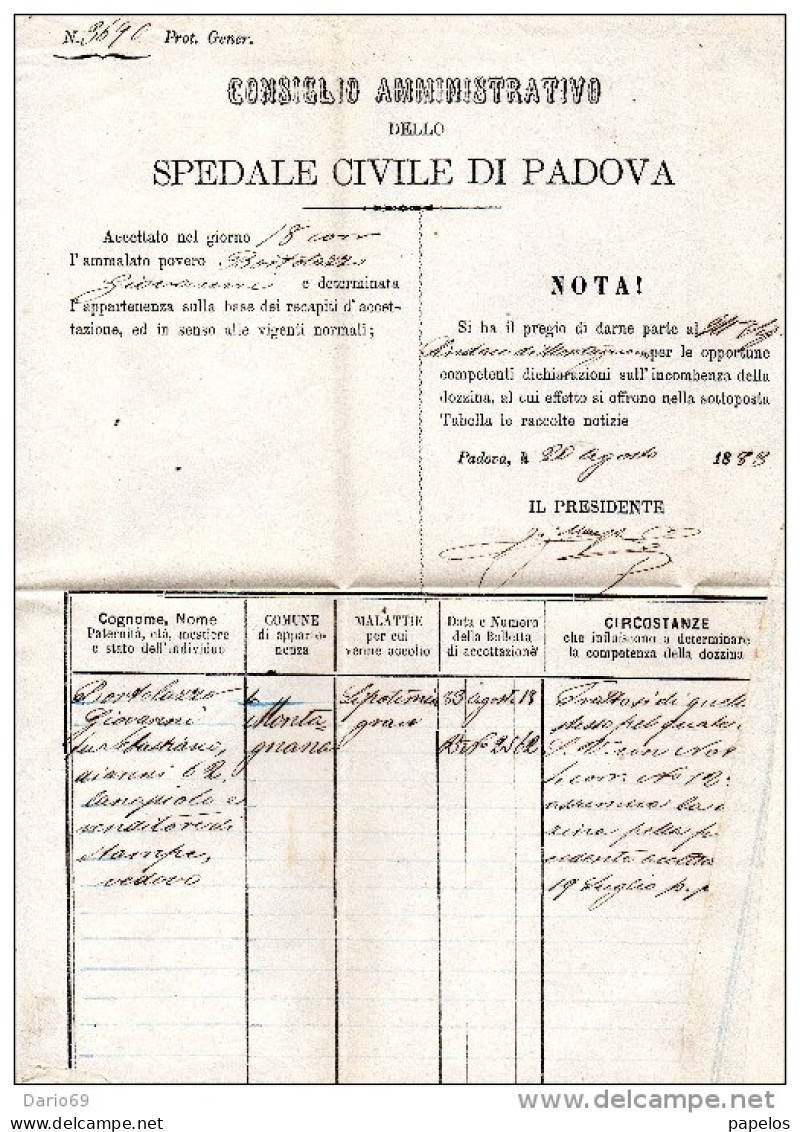 N. 3690 Prot. Gener.
CONSIGLIO AMMINISTRATIVO
DELLO
SPEDALE CIVILE DI PADOVA
Accettato nel giorno 18 corr
l'ammalato povero Bortolazzo
Giovanni e determinata
l'appartenenza sulla base dei recapiti d'accet-
tazione, ed in senso alle vigenti normali;
NOTA!
Si ha il pregio di darne parte al
Sindaco di Montagnana per le opportune
competenti dichiarazioni sull'incombenza della
dozzina, al cui effetto si offrono nella sottoposta
Tabella le raccolte notizie
Padova, li 20 Agosto 1883
IL PRESIDENTE
Cognome, Nome
Paternità, età, mestiere
e stato dell'individuo
COMUNE
di apparte-
nenza
MALATTIE
per cui
venne accolto
Data e Numero
della Bolletta
di accettazione
CIRCOSTANZE
che influiscono a determinare
la competenza della dozzina
Bortolazzo
Giovanni
fu Sebastiano,
d'anni 62,
venditore di
stampe,
vedovo
Monta-
gnana
Lipotimia
grave
83 agosto 18
N° 2562
Trattasi di quello
stesso pel quale
S. V. con Nota
corr. N° 12
19 Luglio p. p.
Dario69
delcampe.net
papelos